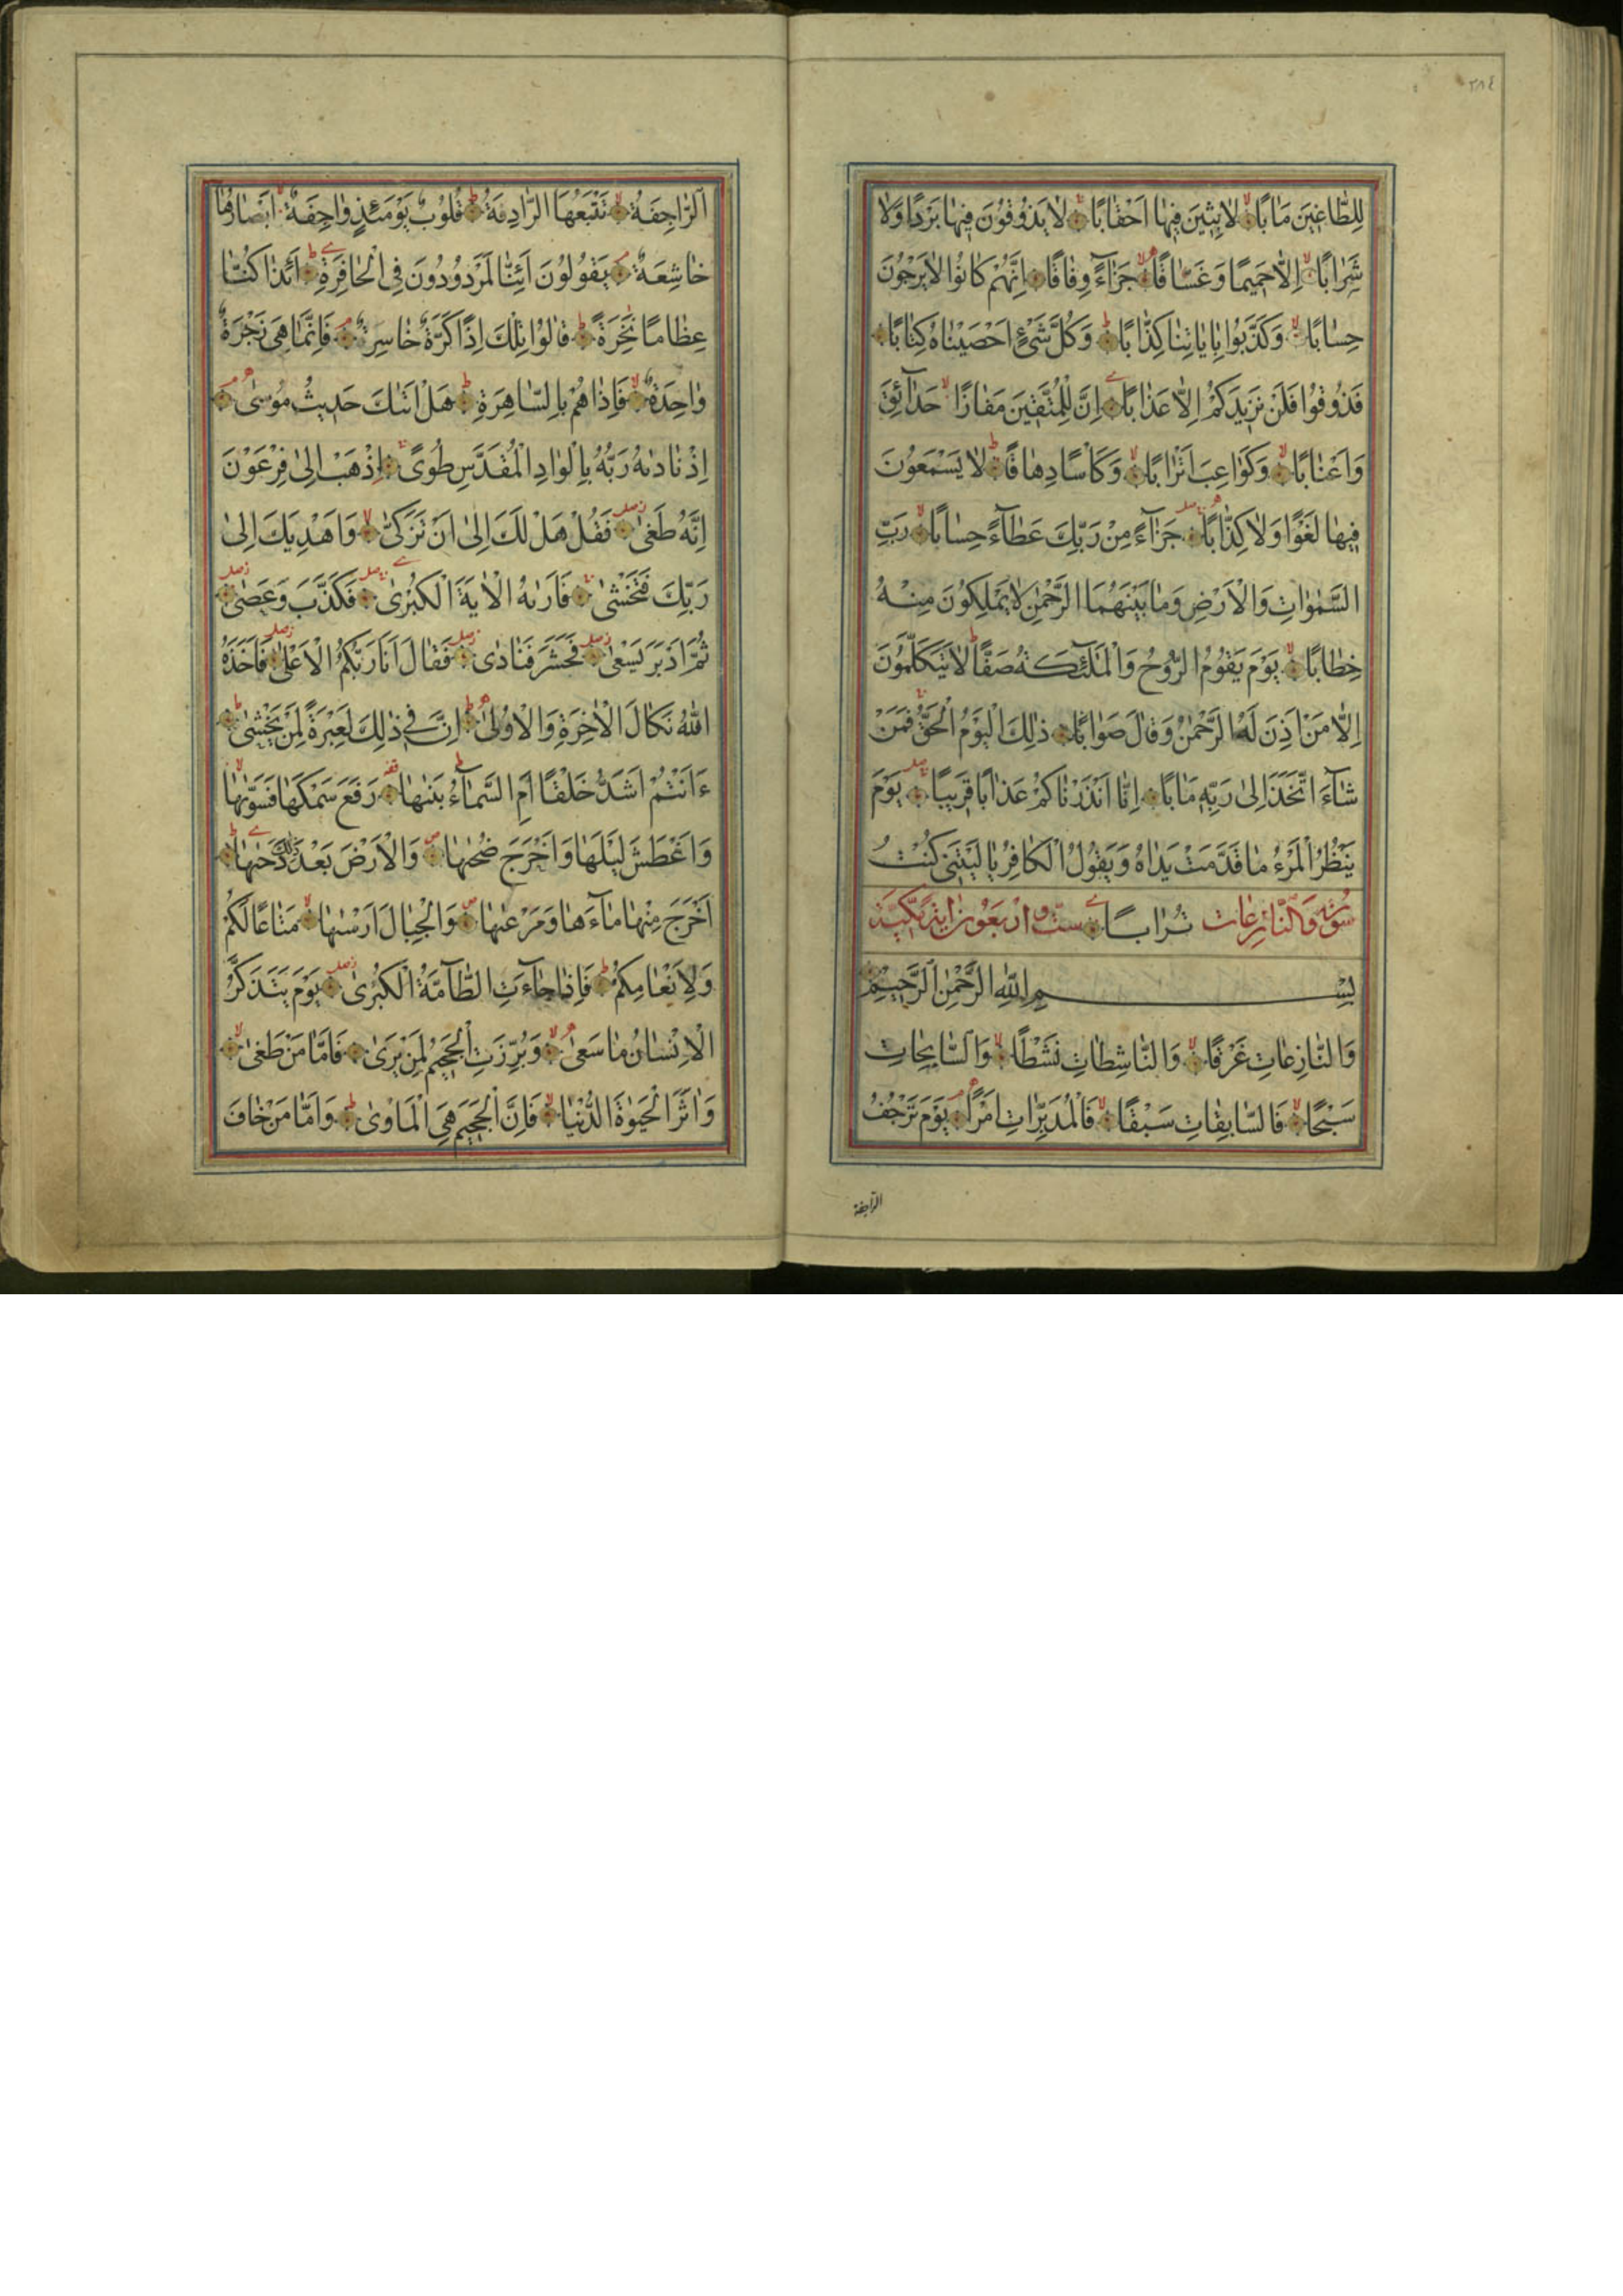 ٢٨٤
لِلطَّاغِينَ مَاٰبًا لَابِثِينَ فِيهَا اَحْقَابًا لَا يَذُوقُونَ فِيهَا بَرْدًا وَلَا
شَرَابًا اِلَّا حَمِيمًا وَغَسَّاقًا جَزَآءً وِفَاقًا اِنَّهُمْ كَانُوا لَا يَرْجُونَ
حِسَابًا وَكَذَّبُوا بِاٰيَاتِنَا كِذَّابًا وَكُلَّ شَىْءٍ اَحْصَيْنَاهُ كِتَابًا
فَذُوقُوا فَلَنْ نَزِيدَكُمْ اِلَّا عَذَابًا اِنَّ لِلْمُتَّقِينَ مَفَازًا حَدَآئِقَ
وَاَعْنَابًا وَكَوَاعِبَ اَتْرَابًا وَكَاْسًا دِهَاقًا لَا يَسْمَعُونَ
فِيهَا لَغْوًا وَلَا كِذَّابًا جَزَآءً مِنْ رَبِّكَ عَطَآءً حِسَابًا رَبِّ
السَّمٰوَاتِ وَالْاَرْضِ وَمَا بَيْنَهُمَا الرَّحْمٰنِ لَا يَمْلِكُونَ مِنْهُ
خِطَابًا يَوْمَ يَقُومُ الرُّوحُ وَالْمَلٰٓئِكَةُ صَفًّا لَا يَتَكَلَّمُونَ
اِلَّا مَنْ اَذِنَ لَهُ الرَّحْمٰنُ وَقَالَ صَوَابًا ذٰلِكَ الْيَوْمُ الْحَقُّ فَمَنْ
شَآءَ اتَّخَذَ اِلٰى رَبِّهِ مَاٰبًا اِنَّا اَنْذَرْنَاكُمْ عَذَابًا قَرِيبًا يَوْمَ
يَنْظُرُ الْمَرْءُ مَا قَدَّمَتْ يَدَاهُ وَيَقُولُ الْكَافِرُ يَا لَيْتَنِى كُنْتُ
سُورَةُ وَالنَّازِعَات تُرَابًا سِتّ وَاَرْبَعُونَ اٰيَة مَكِّيَّة
بِسْمِ اللّٰهِ الرَّحْمٰنِ الرَّحِيمِ
وَالنَّازِعَاتِ غَرْقًا وَالنَّاشِطَاتِ نَشْطًا وَالسَّابِحَاتِ
سَبْحًا فَالسَّابِقَاتِ سَبْقًا فَالْمُدَبِّرَاتِ اَمْرًا يَوْمَ تَرْجُفُ
الرَّاجِفَة
الرَّاجِفَةُ تَتْبَعُهَا الرَّادِفَةُ قُلُوبٌ يَوْمَئِذٍ وَاجِفَةٌ اَبْصَارُهَا
خَاشِعَةٌ يَقُولُونَ اَئِنَّا لَمَرْدُودُونَ فِى الْحَافِرَةِ اَئِذَا كُنَّا
عِظَامًا نَخِرَةً قَالُوا تِلْكَ اِذًا كَرَّةٌ خَاسِرَةٌ فَاِنَّمَا هِىَ زَجْرَةٌ
وَاحِدَةٌ فَاِذَا هُمْ بِالسَّاهِرَةِ هَلْ اَتٰيكَ حَدِيثُ مُوسٰى
اِذْ نَادٰيهُ رَبُّهُ بِالْوَادِ الْمُقَدَّسِ طُوًى اِذْهَبْ اِلٰى فِرْعَوْنَ
اِنَّهُ طَغٰى فَقُلْ هَلْ لَكَ اِلٰى اَنْ تَزَكّٰى وَاَهْدِيَكَ اِلٰى
رَبِّكَ فَتَخْشٰى فَاَرٰيهُ الْاٰيَةَ الْكُبْرٰى فَكَذَّبَ وَعَصٰى
ثُمَّ اَدْبَرَ يَسْعٰى فَحَشَرَ فَنَادٰى فَقَالَ اَنَا رَبُّكُمُ الْاَعْلٰى فَاَخَذَهُ
اللّٰهُ نَكَالَ الْاٰخِرَةِ وَالْاُولٰى اِنَّ فِى ذٰلِكَ لَعِبْرَةً لِمَنْ يَخْشٰى
ءَاَنْتُمْ اَشَدُّ خَلْقًا اَمِ السَّمَآءُ بَنٰيهَا رَفَعَ سَمْكَهَا فَسَوّٰيهَا
وَاَغْطَشَ لَيْلَهَا وَاَخْرَجَ ضُحٰيهَا وَالْاَرْضَ بَعْدَ ذٰلِكَ دَحٰيهَا
اَخْرَجَ مِنْهَا مَآءَهَا وَمَرْعٰيهَا وَالْجِبَالَ اَرْسٰيهَا مَتَاعًا لَكُمْ
وَلِاَنْعَامِكُمْ فَاِذَا جَآءَتِ الطَّآمَّةُ الْكُبْرٰى يَوْمَ يَتَذَكَّرُ
الْاِنْسَانُ مَا سَعٰى وَبُرِّزَتِ الْجَحِيمُ لِمَنْ يَرٰى فَاَمَّا مَنْ طَغٰى
وَاٰثَرَ الْحَيٰوةَ الدُّنْيَا فَاِنَّ الْجَحِيمَ هِىَ الْمَاْوٰى وَاَمَّا مَنْ خَافَ